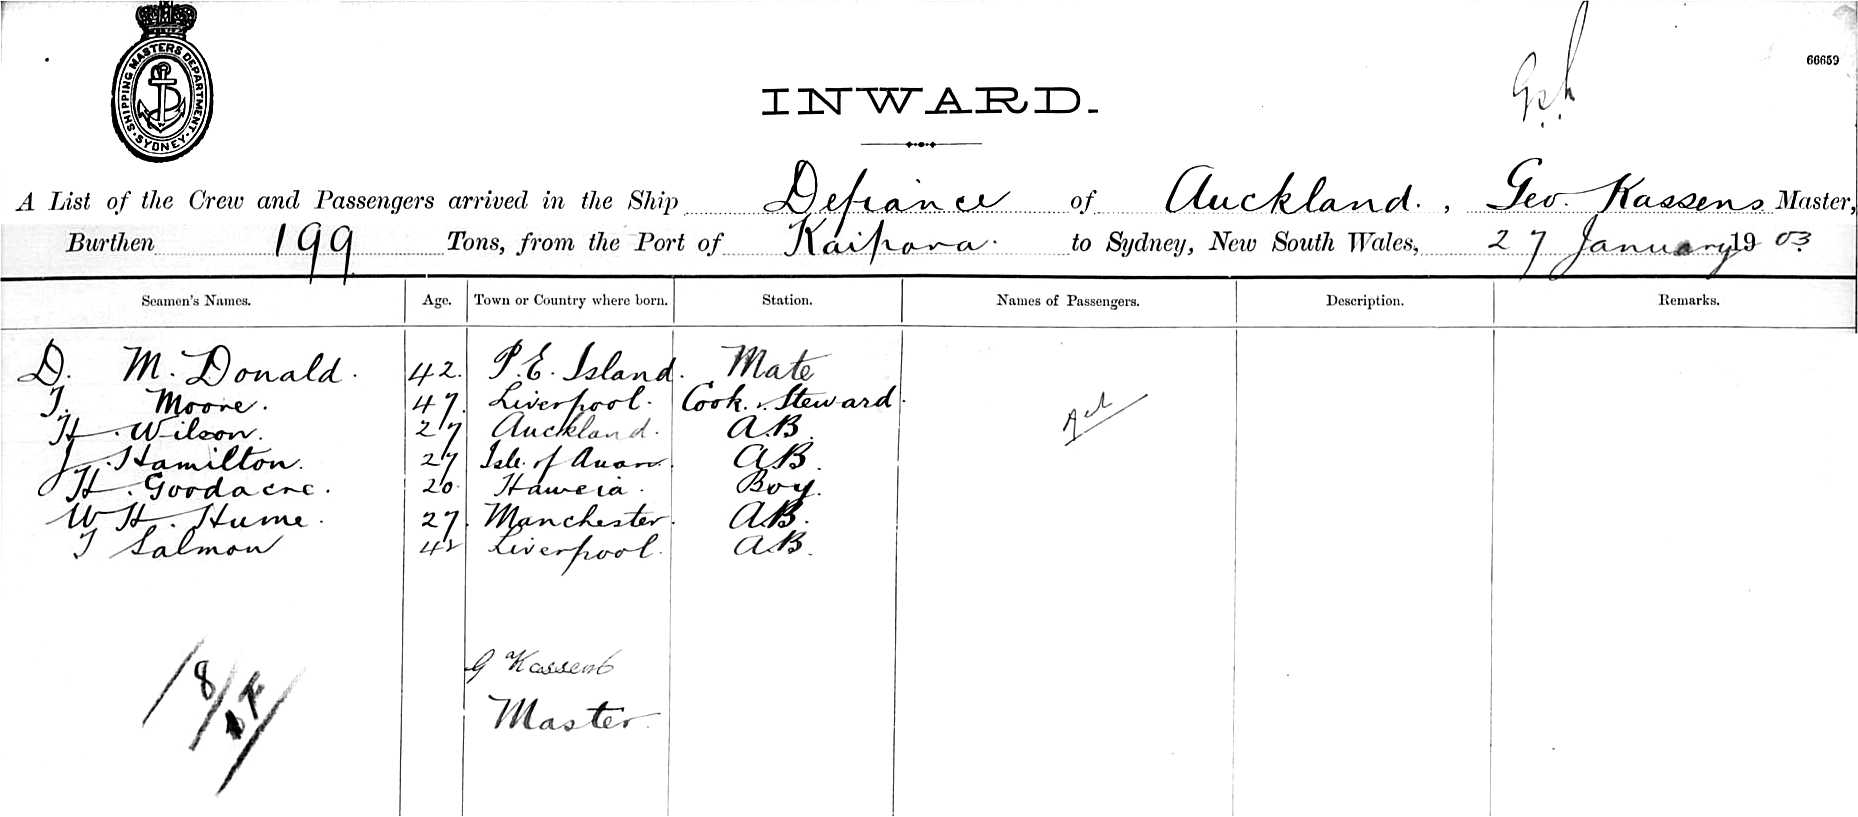 SHIPPING MASTERS DEPARTMENT · SYDNEY ·
66659
INWARD.
A List of the Crew and Passengers arrived in the Ship Defiance of Auckland., Geo. Kassens Master,
Burthen 199 Tons, from the Port of Kaipara. to Sydney, New South Wales, 27 January 1903
Seamen's Names. Age. Town or Country where born. Station. Names of Passengers. Description. Remarks.
D. McDonald. 42. P.E. Island. Mate
T. Moore. 47. Liverpool. Cook & Steward.
H. Wilson. 27 Auckland. A.B.
J. Hamilton. 27 Isle of A.B.
H. Goodacre. 20. Haweia. Boy.
W H. Hume. 27. Manchester. A.B.
T Salmon 42 Liverpool. A.B.
8
G Kassens
Master.